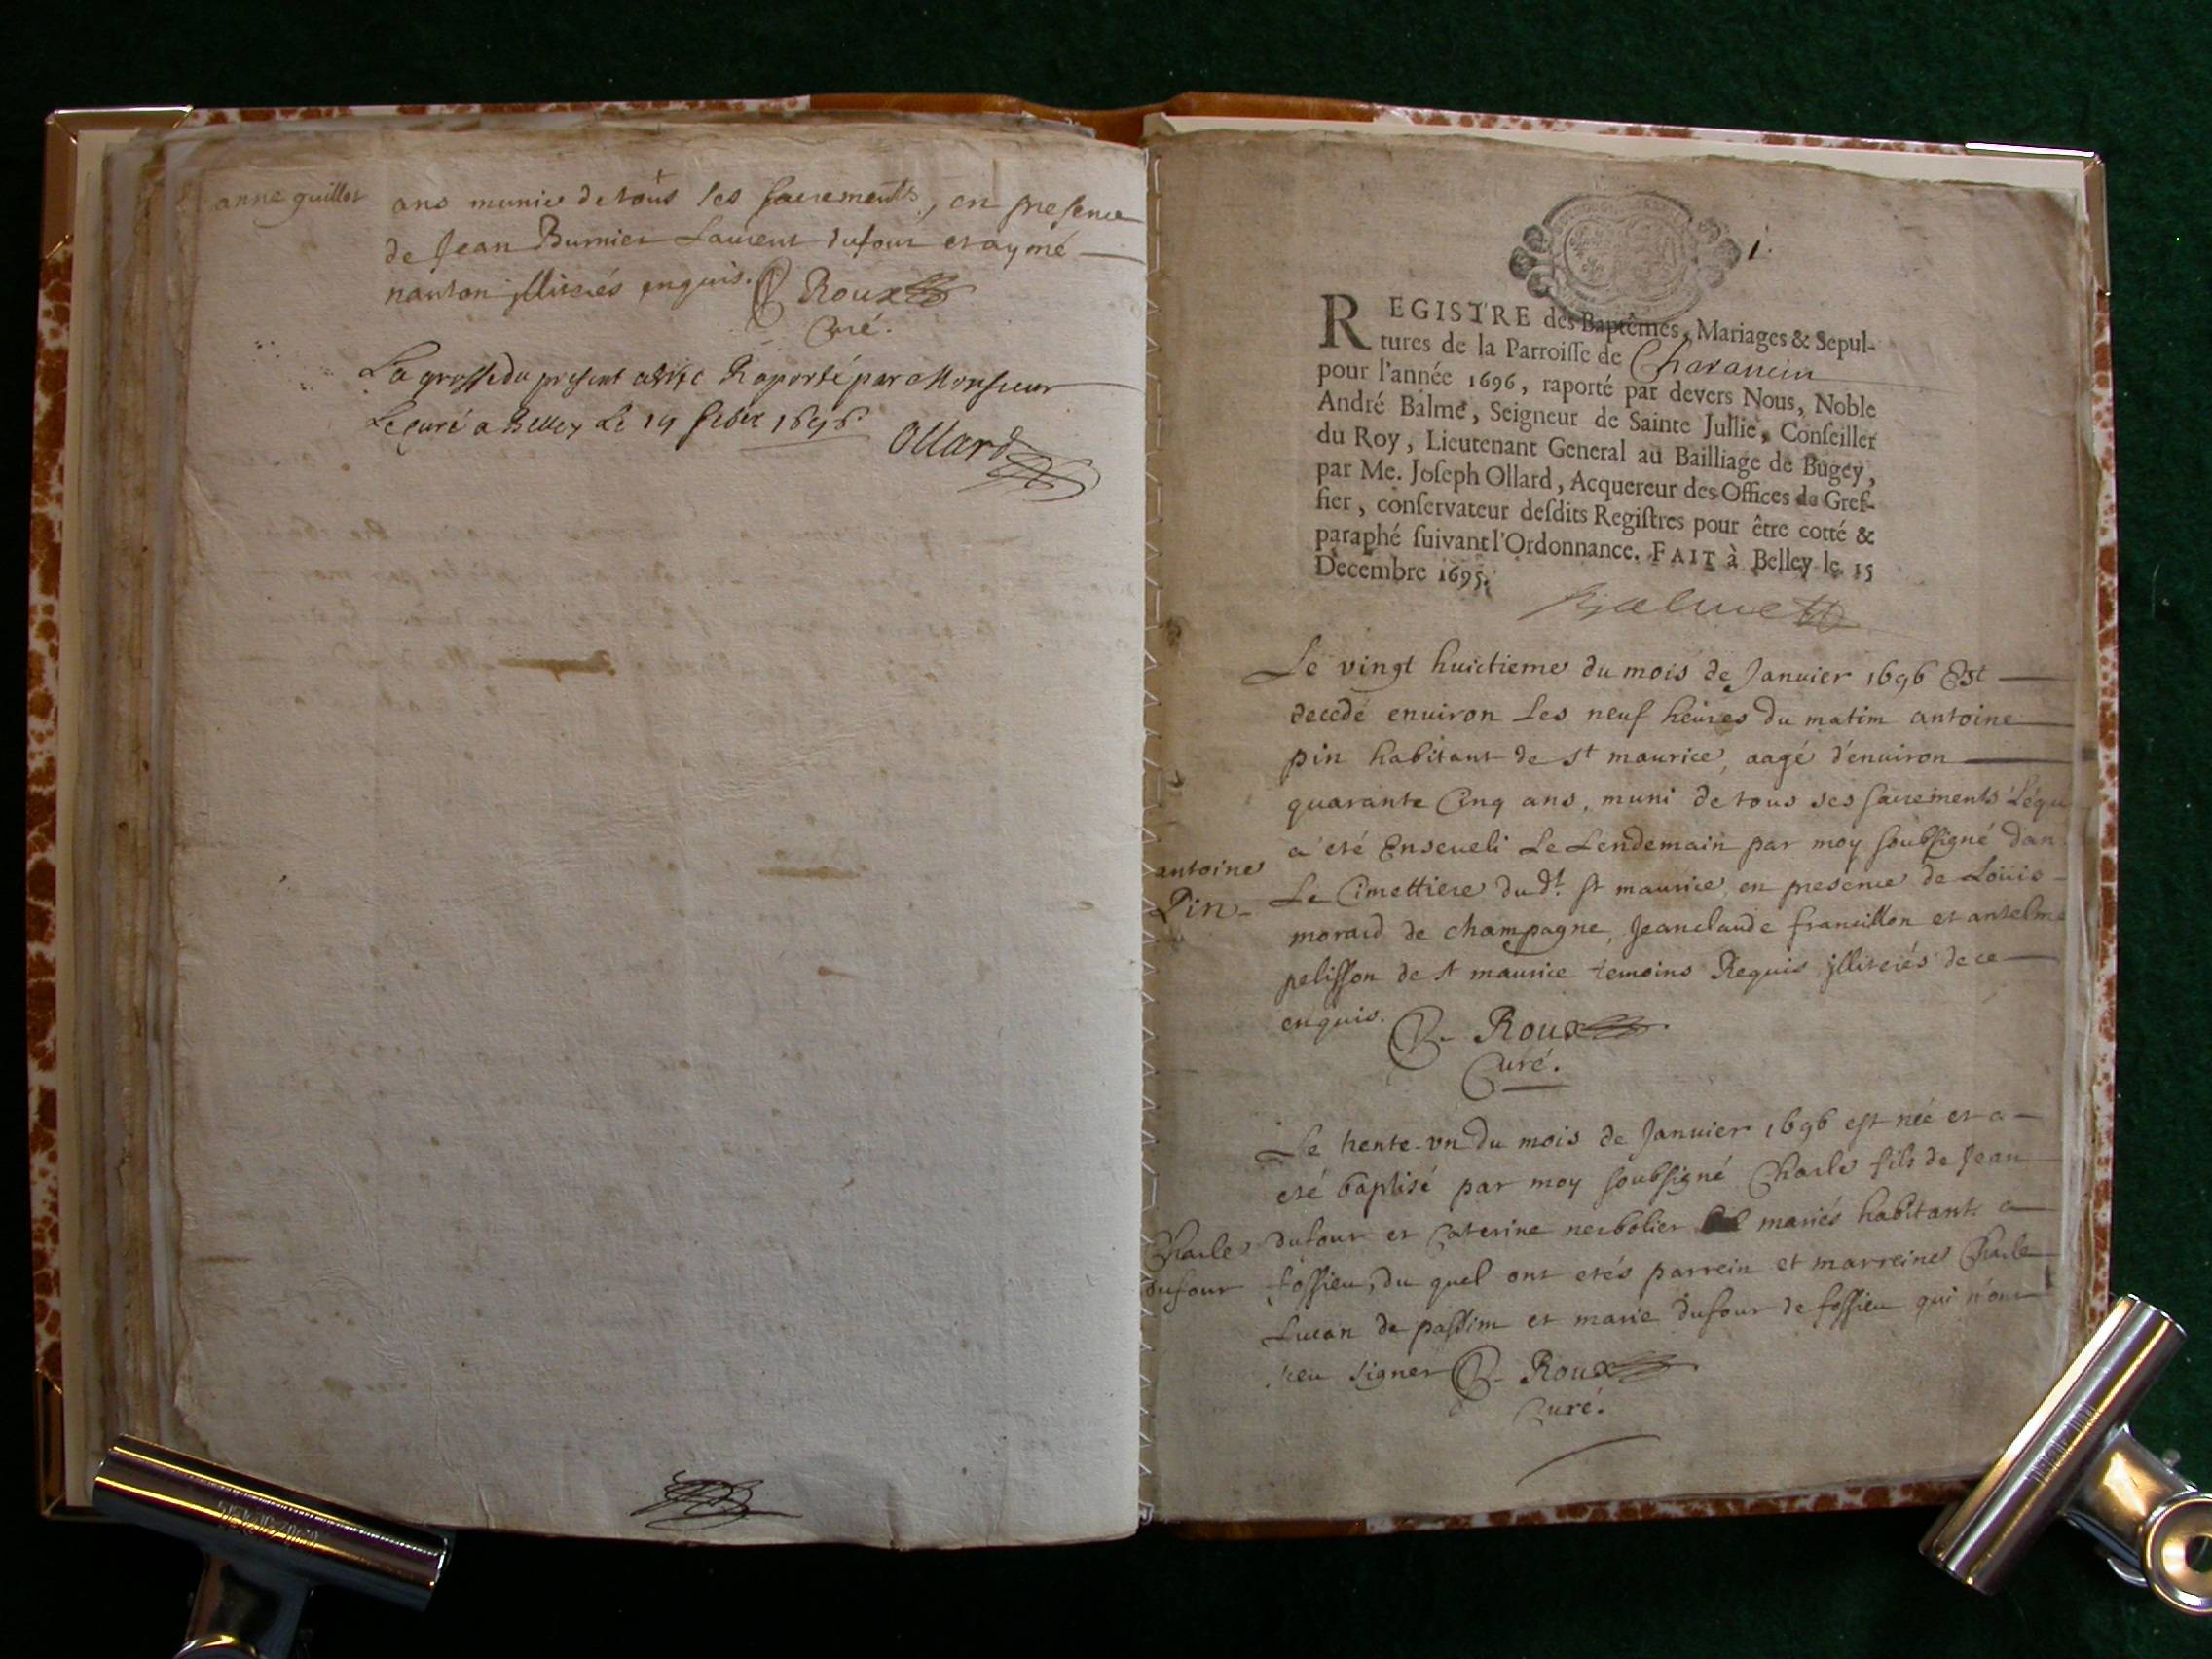 anne guillot
ans munie de tous ses sacrements, en presence
de Jean Burnier Laurent dufour et aymé
nanton illiterés enquis. Roux
Curé.
La grosse du present a esté Raporté par Monsieur
Le curé a Belley Le 19 1696
Ollard
1.
REGISTRE des Baptêmes, Mariages & Sepul-
tures de la Parroisse de Charancin
pour l'année 1696, raporté par devers Nous, Noble
André Balme, Seigneur de Sainte Jullie, Conseiller
du Roy, Lieutenant General au Bailliage de Bugey,
par Me. Joseph Ollard, Acquereur des Offices de Gref-
fier, conservateur desdits Registres pour être cotté &
paraphé suivant l'Ordonnance. FAIT à Belley le 15
Decembre 1695.
Balme
Le vingt huictieme du mois de Janvier 1696 Est
decedé environ Les neuf heures du matim antoine
pin habitant de st maurice, aagé d'environ
quarante Cinq ans, muni de tous ses sacrements Léqu
a eté Enseveli Le Lendemain par moy soubsigné dan
antoine
Pin
Le Cimettiere du dt. st maurice en presence de Louis
morard de champagne, Jeanclaude francillon et antelme
pelisson de st maurice temoins Requis illiterés de ce
enquis. R. Roux
Curé.
Le trente-un du mois de Janvier 1696 est née et a
eté baptisé par moy soubsigné Charle fils de Jean
Charle
dufour
dufour et Caterine nerbolier mariés habitants a
fossieu, du quel ont etés parrein et marreine Charle
Lucan de passim et marie dufour de fossieu qui n'ont
sceu signer R. Roux
Curé.